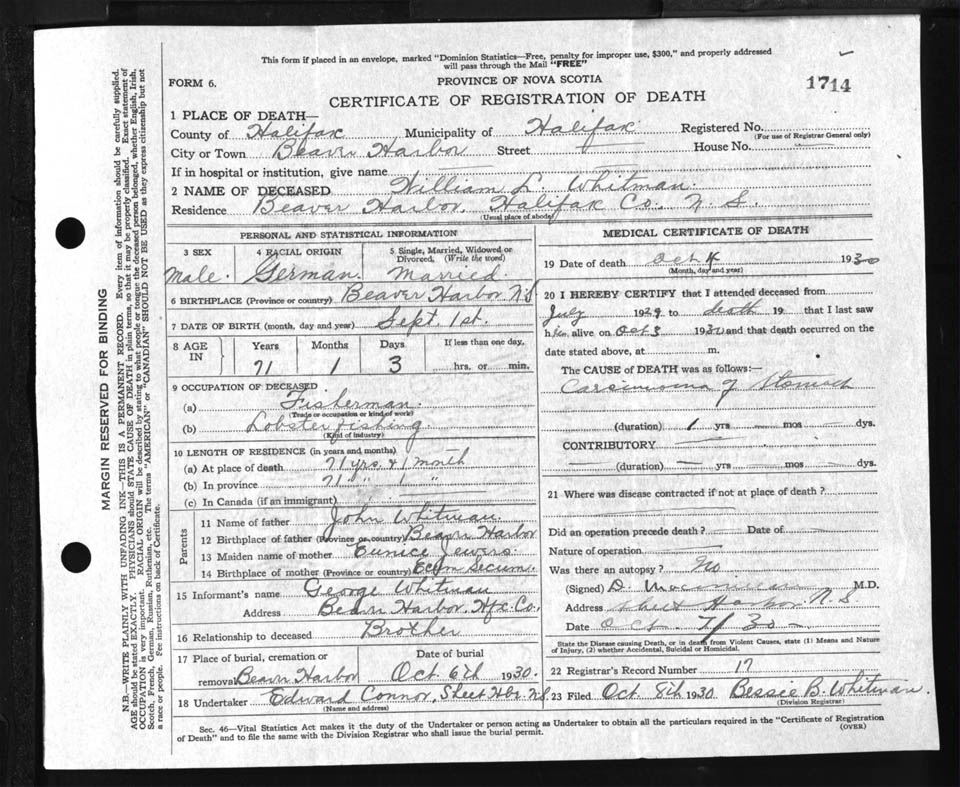 This form if placed in an envelope, marked "Dominion Statistics—Free, penalty for improper use, $300," and properly addressed
will pass through the Mail "FREE"
FORM 6.
PROVINCE OF NOVA SCOTIA
1714
CERTIFICATE OF REGISTRATION OF DEATH
1 PLACE OF DEATH—
County of Halifax Municipality of Halifax Registered No.
(For use of Registrar General only)
City or Town Beaver Harbor Street House No.
If in hospital or institution, give name
2 NAME OF DECEASED William L. Whitman
Residence Beaver Harbor, Halifax Co. N. S.
(Usual place of abode)
PERSONAL AND STATISTICAL INFORMATION
3 SEX 4 RACIAL ORIGIN 5 Single, Married, Widowed or Divorced, (Write the word)
Male. German. Married.
6 BIRTHPLACE (Province or country) Beaver Harbor N.S
7 DATE OF BIRTH (month, day and year) Sept. 1st.
8 AGE IN Years Months Days If less than one day,
71 1 3 hrs. or min.
9 OCCUPATION OF DECEASED
(a) Fisherman.
(Trade or occupation or kind of work)
(b) Lobster fishing
(Kind of industry)
10 LENGTH OF RESIDENCE (in years and months)
(a) At place of death 71 yrs. & 1 month
(b) In province 71 " 1 "
(c) In Canada (if an immigrant)
Parents
11 Name of father John Whitman.
12 Birthplace of father (Province or country) Beaver Harbor
13 Maiden name of mother Eunice Jewers.
14 Birthplace of mother (Province or country) Ecum Secum.
15 Informant's name George Whitman
Address Beaver Harbor, Hfx. Co.
16 Relationship to deceased Brother
17 Place of burial, cremation or removal Date of burial
Beaver Harbor Oct. 6th 1930.
18 Undertaker Edward Connor, Sheet Hbr. N.S
(Name and address)
MEDICAL CERTIFICATE OF DEATH
19 Date of death Oct 4 1930
(Month, day and year)
20 I HEREBY CERTIFY that I attended deceased from
July 1929 to death 19 that I last saw
him alive on Oct 3 1930 and that death occurred on the
date stated above, at m.
The CAUSE of DEATH was as follows:—
Carsinoma of Stomach
(duration) 1 yrs mos dys.
CONTRIBUTORY
(duration) yrs mos. dys.
21 Where was disease contracted if not at place of death?
Did an operation precede death? Date of
Nature of operation
Was there an autopsy? No
(Signed) D. M.D.
Address Sheet Harbor N.S
Date Oct. 7/30
State the Disease causing Death, or in death from Violent Causes, state (1) Means and Nature
of Injury, (2) whether Accidental, Suicidal or Homicidal.
22 Registrar's Record Number 17
23 Filed Oct 8th 1930 Bessie B. Whitman.
(Division Registrar)
Sec. 46—Vital Statistics Act makes it the duty of the Undertaker or person acting as Undertaker to obtain all the particulars required in the "Certificate of Registration
of Death" and to file the same with the Division Registrar who shall issue the burial permit.
(OVER)
MARGIN RESERVED FOR BINDING
N.B.—WRITE PLAINLY WITH UNFADING INK—THIS IS A PERMANENT RECORD. Every item of information should be carefully supplied.
AGE should be stated EXACTLY. PHYSICIANS should STATE CAUSE OF DEATH in plain terms, so that it may be properly classified. Exact statement of
OCCUPATION is very important. RACIAL ORIGIN will be described by stating to what people or tongue the deceased person belonged, whether English, Irish,
Scotch, French, German, Russian, Ruthenian, etc. The terms "AMERICAN" or "CANADIAN" SHOULD NOT BE USED as they express citizenship but not
a race or people. See instructions on back of Certificate.